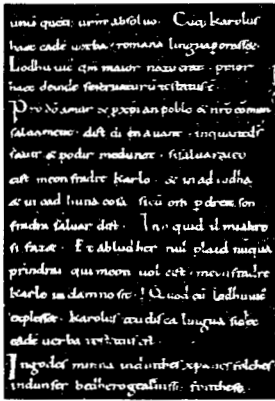 unu quoq; urm absoluo. Cuq; karolus
haec eade uerba romana lingua porasset
Lodhuuic qm maior natu erat prior
haec deinde seseruaturu testatus e.
Pro do amur & xpian poblo & nro comun
saluament. dist di en auant. inquantds
sauir & podir medunat. sisaluaraieo
cist meon fradre karlo. & in ad iudha
& in cad huna cosa sicu om p dreit son
fradra saluar dist. Ino quid il mialtre
si fazet. Et abludher nul plaid nuqua
prindrai qui meon uol cist. meon fradre
karle in damno sit. Quod cu lodhuuic
explesset. karolus teudisca lingua sic ec
eade uerba testatus est.
Ingodes minna indinthes xpanes folches
indunser bedhero gealtnissi. fonthese